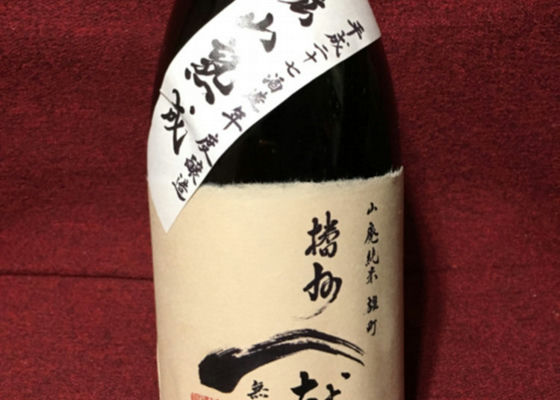 平成二十七酒造年度醸造
山熟成
山廃純米 雄町
播州
一献
無